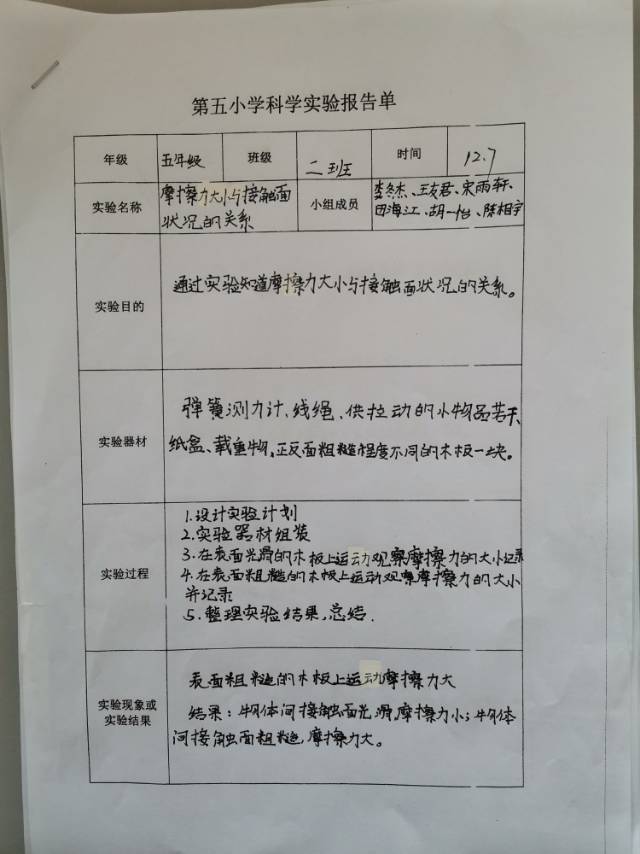 第五小学科学实验报告单
年级 五年级 班级 二班 时间 12.7
实验名称 摩擦力大小与接触面
状况的关系
小组成员 李冬杰、王友君、宋雨轩、
田海江、胡一怡、陈相宇
实验目的 通过实验知道摩擦力大小与接触面状况的关系。
实验器材 弹簧测力计、线绳、供拉动的小物品若干、
纸盒、载重物,正反面粗糙程度不同的木板一块。
实验过程 1.设计实验计划
2.实验器材组装
3.在表面光滑的木板上运动观察摩擦力的大小记录
4.在表面粗糙的木板上运动观察摩擦力的大小
并记录
5.整理实验结果,总结.
实验现象或
实验结果
表面粗糙的木板上运动摩擦力大
结果:物体间接触面光滑,摩擦力小;物体
间接触面粗糙,摩擦力大。